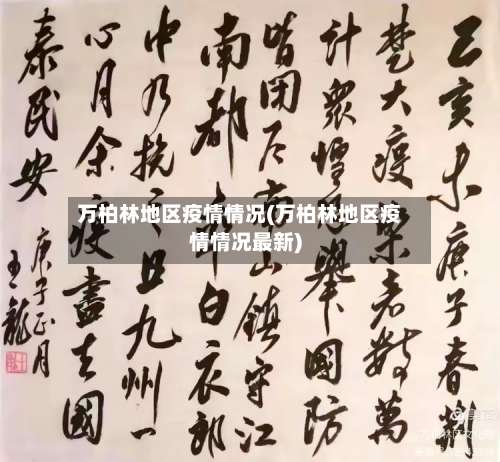 己亥末庚子春荆
楚大疫染者数萬
計衆惶恐舉國防
皆閉户南山鎮守江
南都白衣郎
中乃抗之且九州一
心月余疫盡去國
泰民安
庚子正月
王龍
万柏林地区疫情情况(万柏林地区疫
情情况最新)